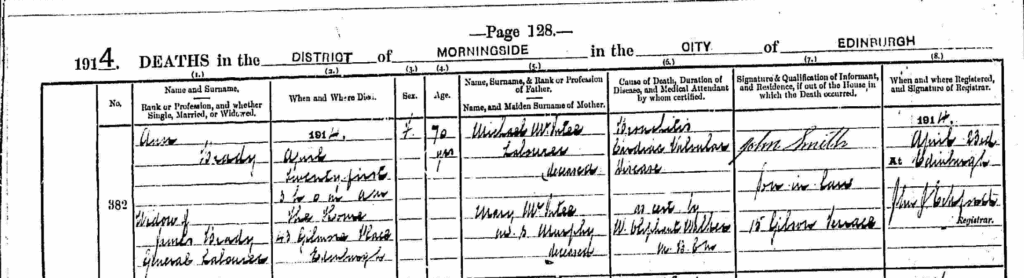 —Page 128.—
1914. DEATHS in the DISTRICT of MORNINGSIDE in the CITY of EDINBURGH
(1.) (2.) (3.) (4.) (5.) (6.) (7.) (8.)
No.
Name and Surname,
Rank or Profession, and whether
Single, Married, or Widowed.
When and Where Died.
Sex.
Age.
Name, Surname, & Rank or Profession
of Father.
Name, and Maiden Surname of Mother.
Cause of Death, Duration of
Disease, and Medical Attendant
by whom certified.
Signature & Qualification of Informant,
and Residence, if out of the House in
which the Death occurred.
When and where Registered,
and Signature of Registrar.
382
Ann
Brady
Widow of
James Brady
General Labourer
1914,
April
Twenty first
3 h 0 m am
The Home
43 Gilmore Place
Edinburgh
F
70
yrs
Michael McAtee
Labourer
deceased
Mary McAtee
m. s. Murphy
deceased
Bronchitis
Cardiac Valvular
Disease
as cert by
W. Oliphant
John Smith
Son in law
15 Gibson Terrace
1914,
April 23rd
At Edinburgh
John J
Registrar.